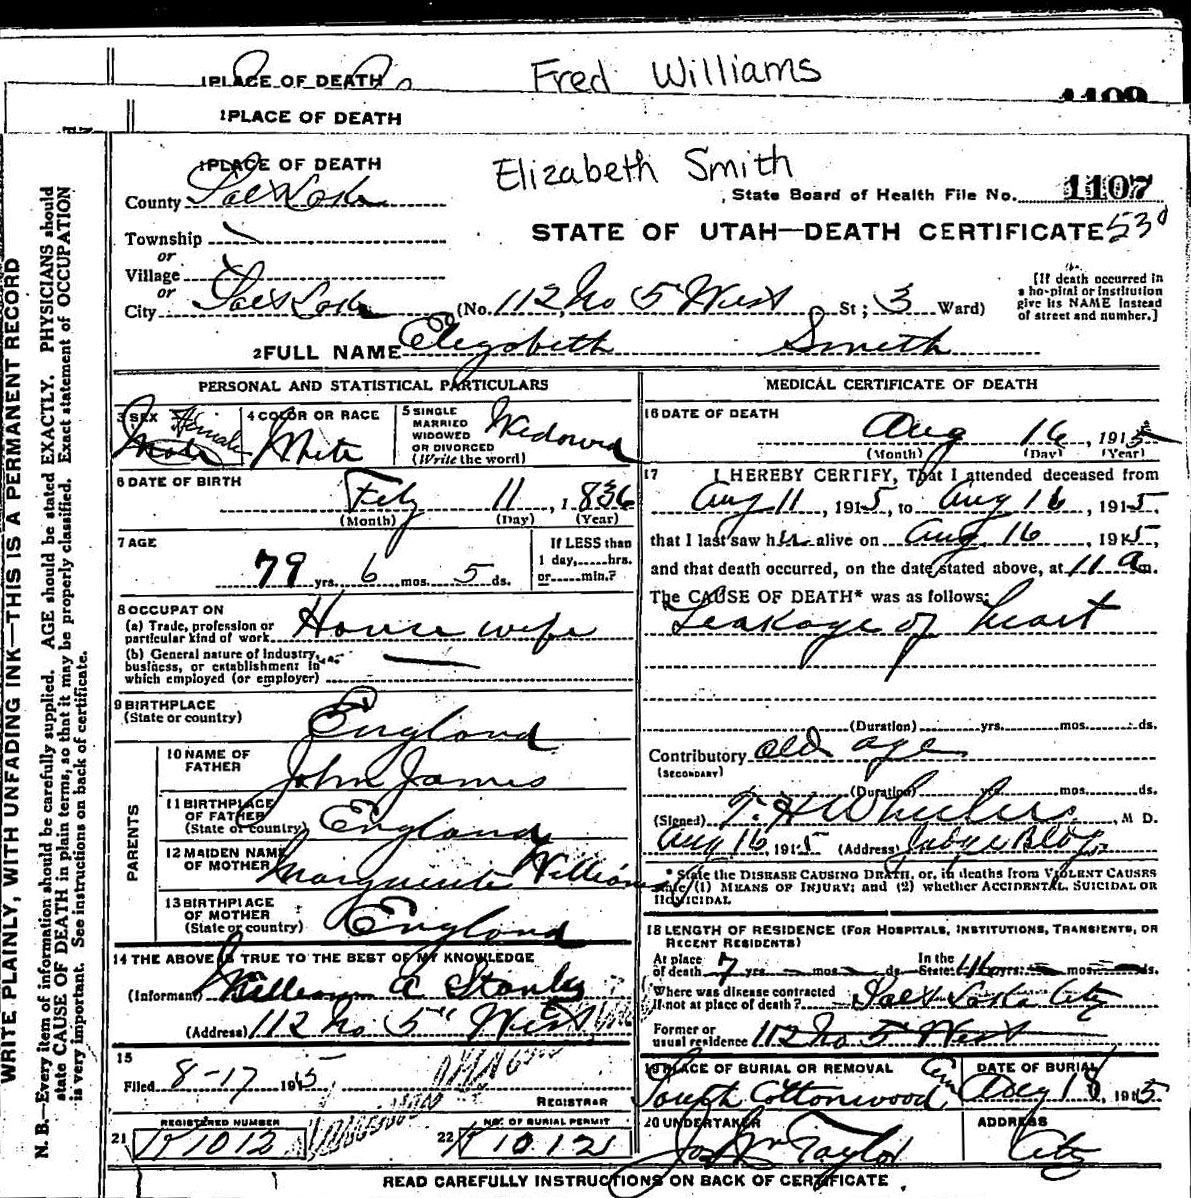 1 PLACE OF DEATH
Fred Williams
1109
1 PLACE OF DEATH
1 PLACE OF DEATH
Elizabeth Smith
State Board of Health File No. 1107
County Salt Lake
Township
STATE OF UTAH—DEATH CERTIFICATE 530
or
Village
or
City Salt Lake (No. 112 No 5 West St; 3 Ward)
[If death occurred in
a hospital or institution
give its NAME instead
of street and number.]
2 FULL NAME Elizabeth Smith
PERSONAL AND STATISTICAL PARTICULARS
3 SEX Female Male
4 COLOR OR RACE White
5 SINGLE
MARRIED
WIDOWED
OR DIVORCED
(Write the word) Widowed
6 DATE OF BIRTH
Feby 11, 1836
(Month) (Day) (Year)
7 AGE
79 yrs. 6 mos. 5 ds.
If LESS than
1 day,......hrs.
or......min.?
8 OCCUPATION
(a) Trade, profession or
particular kind of work House wife
(b) General nature of industry,
business, or establishment in
which employed (or employer)
9 BIRTHPLACE
(State or country) England
PARENTS
10 NAME OF
FATHER John James
11 BIRTHPLACE
OF FATHER
(State or country) England
12 MAIDEN NAME
OF MOTHER Marguerite Williams
13 BIRTHPLACE
OF MOTHER
(State or country) England
14 THE ABOVE IS TRUE TO THE BEST OF MY KNOWLEDGE
(Informant) William A Stanley
(Address) 112 No 5" West
15
Filed 8-17 1915
REGISTRAR
REGISTERED NUMBER
21 K1012
NO. OF BURIAL PERMIT
22 K10121
MEDICAL CERTIFICATE OF DEATH
16 DATE OF DEATH
Aug 16, 1915
(Month) (Day) (Year)
17 I HEREBY CERTIFY, That I attended deceased from
Aug 11, 1915, to Aug 16, 1915,
that I last saw her alive on Aug 16, 1915,
and that death occurred, on the date stated above, at 11 a m.
The CAUSE OF DEATH* was as follows:
Leakage of heart
(Duration) yrs. mos. ds.
Contributory old age
(SECONDARY)
(Duration) yrs. mos. ds.
(Signed) T. H Wheeler, M D.
Aug 16, 1915 (Address) Judge Bldg
* State the DISEASE CAUSING DEATH, or, in deaths from VIOLENT CAUSES
state (1) MEANS OF INJURY; and (2) whether ACCIDENTAL, SUICIDAL OR
HOMICIDAL
18 LENGTH OF RESIDENCE (FOR HOSPITALS, INSTITUTIONS, TRANSIENTS, OR
RECENT RESIDENTS)
At place
of death 7 yrs. mos. ds.
In the
State 46 yrs. mos. ds.
Where was disease contracted
if not at place of death? Salt Lake City
Former or
usual residence 112 No 5 West
19 PLACE OF BURIAL OR REMOVAL
South Cottonwood Cem
DATE OF BURIAL
Aug 18, 1915
20 UNDERTAKER
Jos Wm Taylor
ADDRESS
City
READ CAREFULLY INSTRUCTIONS ON BACK OF CERTIFICATE.
WRITE PLAINLY, WITH UNFADING INK—THIS IS A PERMANENT RECORD
N. B.—Every item of information should be carefully supplied. AGE should be stated EXACTLY. PHYSICIANS should
state CAUSE OF DEATH in plain terms, so that it may be properly classified. Exact statement of OCCUPATION
is very important. See instructions on back of certificate.